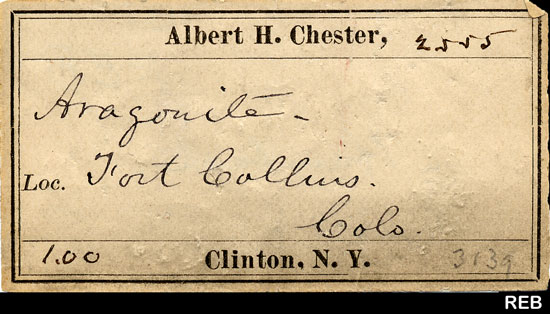 Albert H. Chester, 2555
Aragonite -
Loc. Fort Collins.
Colo.
1.00 Clinton, N. Y. 3139
REB